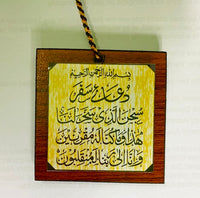 بسم الله الرحمن الرحيم
دعاء سفر
سبحن الذی سخر لنا
هذا وما كنا له مقرنین
وانا الی ربنا لمنقلبون